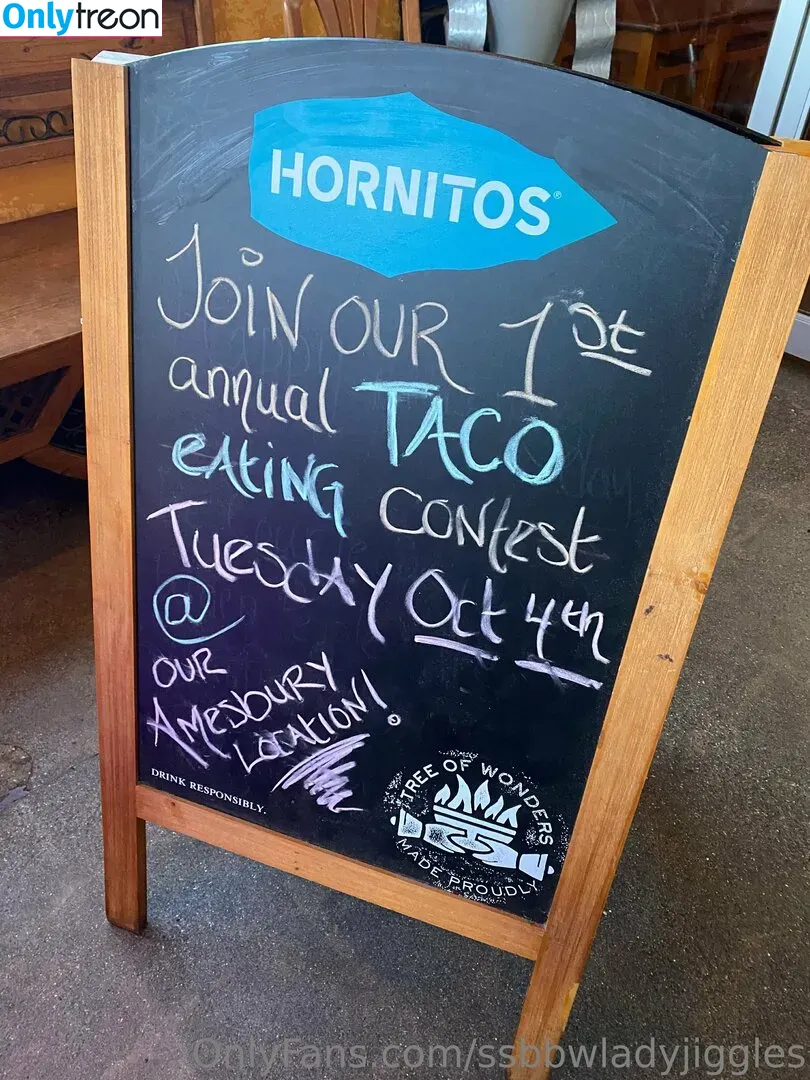 Onlytreon
HORNITOS®
JOIN OUR 1st
annual TACO
eATiNG CONtest
Tuesday Oct 4th
@
OUR
AMesbURY
LOCATION!
DRINK RESPONSIBLY.
TREE OF WONDERS
MADE PROUDLY
OnlyFans.com/ssbbwladyjiggles